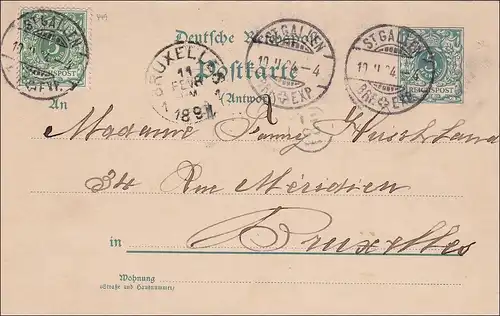 Deutsche Reichspost
Postkarte
(Antwort)
An
ST. GALLEN
10.II.94.-4
BRF. EXP.
ST. GALLEN
10.II.94.-4
BRF. EXP.
ST. GALLEN
BRF.
5
REICHSPOST
REICHSPOST
BRUXELLES
11
1894
Madame
34 Rue Méridien
in Bruxelles
Wohnung
(Straße und Hausnummer)